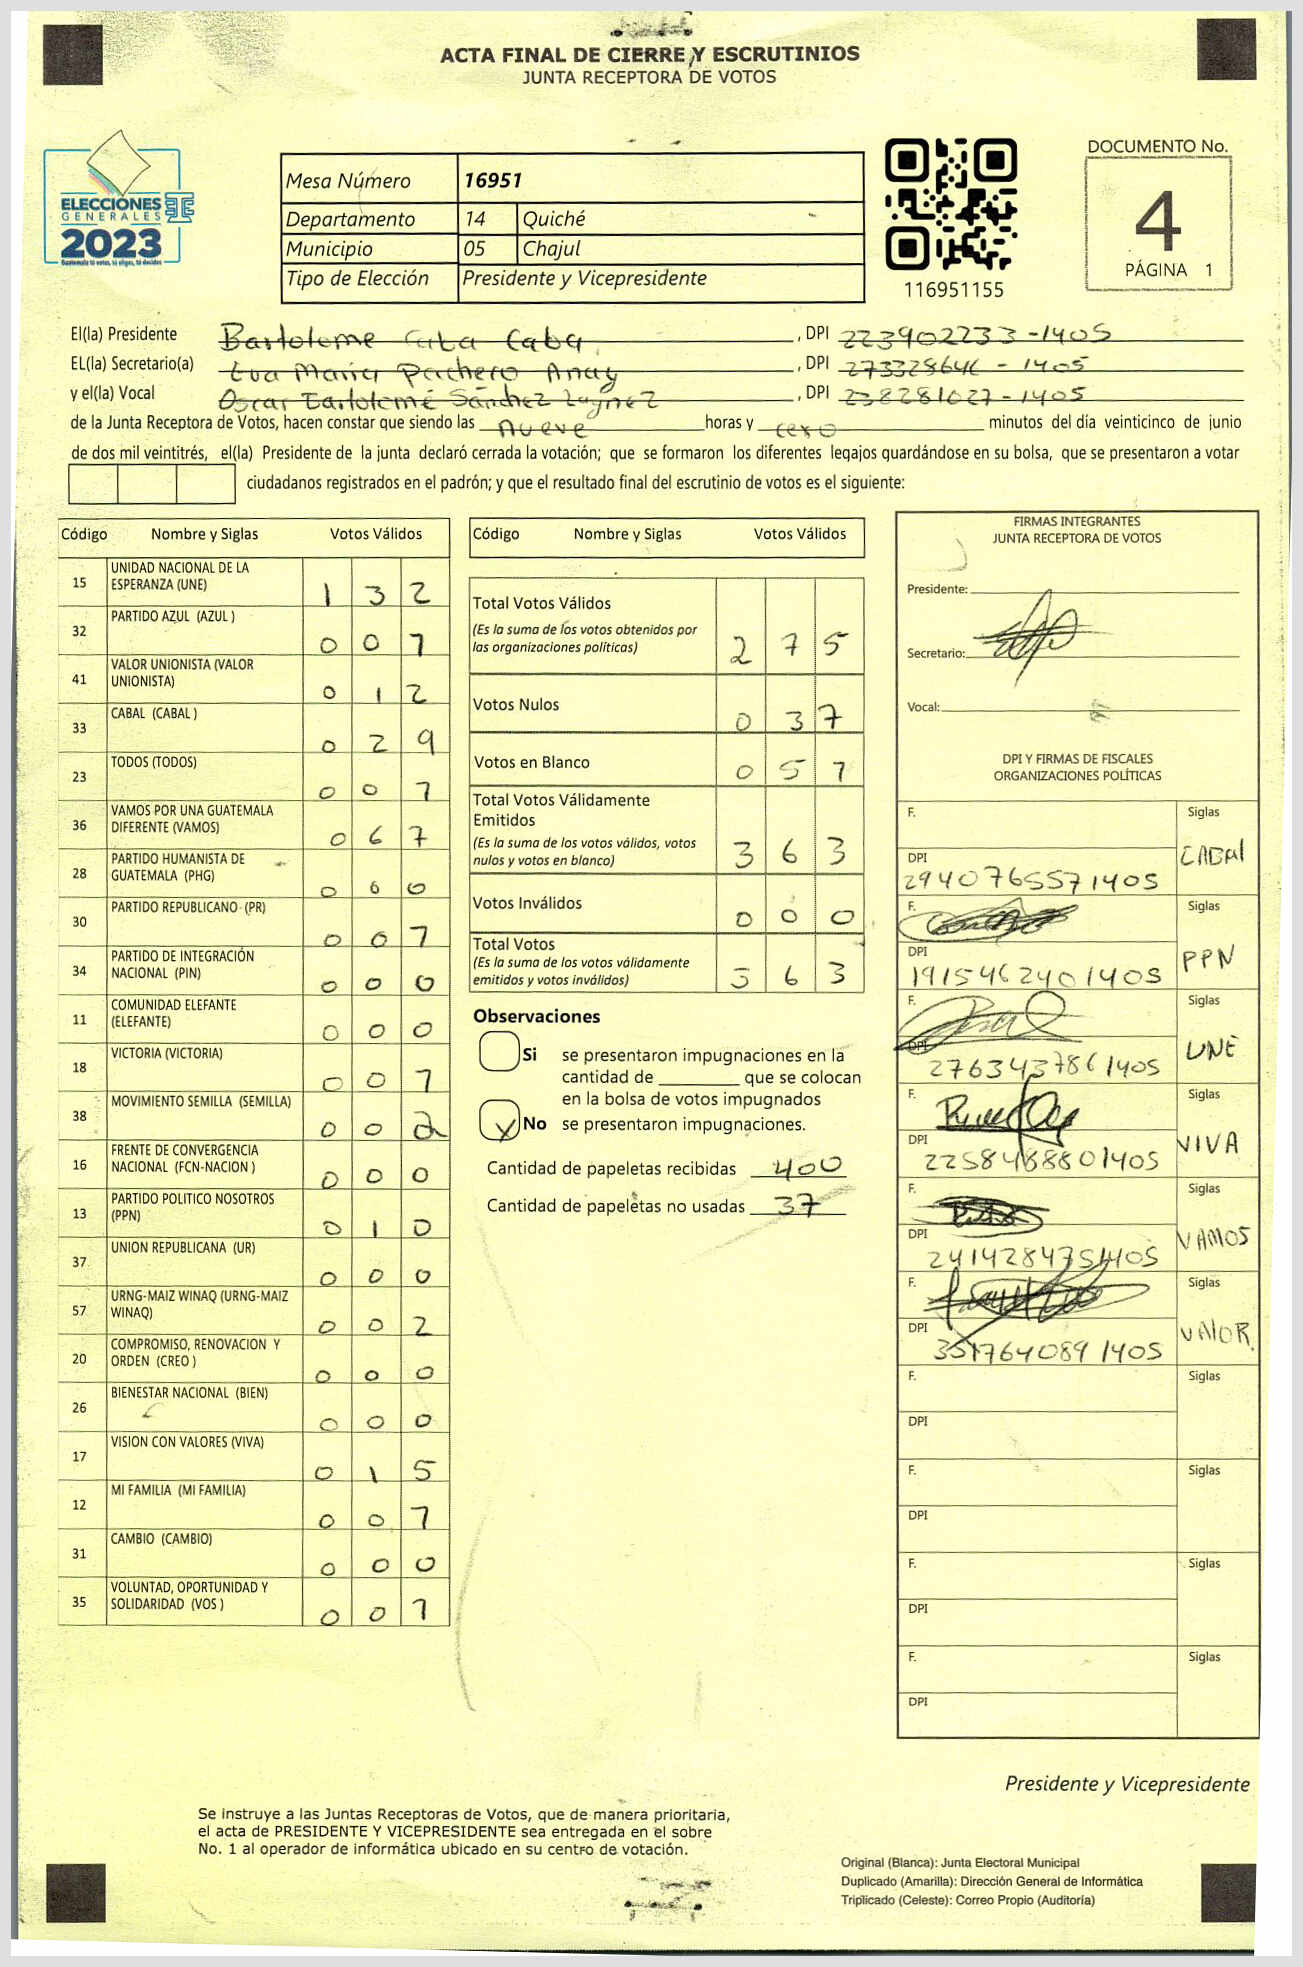 ACTA FINAL DE CIERRE Y ESCRUTINIOS
JUNTA RECEPTORA DE VOTOS
ELECCIONES
GENERALES
2023
Mesa Número 16951
Departamento 14 Quiché
Municipio 05 Chajul
Tipo de Elección Presidente y Vicepresidente
116951155
DOCUMENTO No.
4
PÁGINA 1
El(la) Presidente Bartolome Caba Caba, DPI 223902233-1405
EL(la) Secretario(a) Eva Maria Pacheco Anay, DPI 273328646-1405
y el(la) Vocal Oscar Bartolomé Sánchez Laynez, DPI 238281027-1405
de la Junta Receptora de Votos, hacen constar que siendo las nueve horas y cero minutos del día veinticinco de junio
de dos mil veintitrés, el(la) Presidente de la junta declaró cerrada la votación; que se formaron los diferentes legajos guardándose en su bolsa, que se presentaron a votar
ciudadanos registrados en el padrón; y que el resultado final del escrutinio de votos es el siguiente:
Código Nombre y Siglas Votos Válidos
15 UNIDAD NACIONAL DE LA ESPERANZA (UNE) 1 3 2
32 PARTIDO AZUL (AZUL ) 0 0 7
41 VALOR UNIONISTA (VALOR UNIONISTA) 0 1 2
33 CABAL (CABAL ) 0 2 9
23 TODOS (TODOS) 0 0 7
36 VAMOS POR UNA GUATEMALA DIFERENTE (VAMOS) 0 6 7
28 PARTIDO HUMANISTA DE GUATEMALA (PHG) 0 0 0
30 PARTIDO REPUBLICANO (PR) 0 0 7
34 PARTIDO DE INTEGRACIÓN NACIONAL (PIN) 0 0 0
11 COMUNIDAD ELEFANTE (ELEFANTE) 0 0 0
18 VICTORIA (VICTORIA) 0 0 7
38 MOVIMIENTO SEMILLA (SEMILLA) 0 0 2
16 FRENTE DE CONVERGENCIA NACIONAL (FCN-NACION ) 0 0 0
13 PARTIDO POLITICO NOSOTROS (PPN) 0 1 0
37 UNION REPUBLICANA (UR) 0 0 0
57 URNG-MAIZ WINAQ (URNG-MAIZ WINAQ) 0 0 2
20 COMPROMISO, RENOVACION Y ORDEN (CREO ) 0 0 0
26 BIENESTAR NACIONAL (BIEN) 0 0 0
17 VISION CON VALORES (VIVA) 0 1 5
12 MI FAMILIA (MI FAMILIA) 0 0 7
31 CAMBIO (CAMBIO) 0 0 0
35 VOLUNTAD, OPORTUNIDAD Y SOLIDARIDAD (VOS ) 0 0 1
Código Nombre y Siglas Votos Válidos
Total Votos Válidos 2 7 5
(Es la suma de los votos obtenidos por
las organizaciones políticas)
Votos Nulos 0 3 7
Votos en Blanco 0 5 1
Total Votos Válidamente
Emitidos 3 6 3
(Es la suma de los votos válidos, votos
nulos y votos en blanco)
Votos Inválidos 0 0 0
Total Votos 3 6 3
(Es la suma de los votos válidamente
emitidos y votos inválidos)
Observaciones
Si se presentaron impugnaciones en la
cantidad de ________ que se colocan
en la bolsa de votos impugnados
X No se presentaron impugnaciones.
Cantidad de papeletas recibidas 400
Cantidad de papeletas no usadas 37
FIRMAS INTEGRANTES
JUNTA RECEPTORA DE VOTOS
Presidente:
Secretario:
Vocal:
DPI Y FIRMAS DE FISCALES
ORGANIZACIONES POLÍTICAS
F. Siglas
DPI 2940765571405 CABAL
F. Siglas
DPI 1915462401405 PPN
F. Siglas
DPI 2763437861405 UNE
F. Siglas
DPI 2258488801405 VIVA
F. Siglas
DPI 2414284751405 VAMOS
F. Siglas
DPI 3517640891405 VALOR
F. Siglas
DPI
F. Siglas
DPI
F. Siglas
DPI
F. Siglas
DPI
Presidente y Vicepresidente
Se instruye a las Juntas Receptoras de Votos, que de manera prioritaria,
el acta de PRESIDENTE Y VICEPRESIDENTE sea entregada en el sobre
No. 1 al operador de informática ubicado en su centro de votación.
Original (Blanca): Junta Electoral Municipal
Duplicado (Amarilla): Dirección General de Informática
Triplicado (Celeste): Correo Propio (Auditoría)